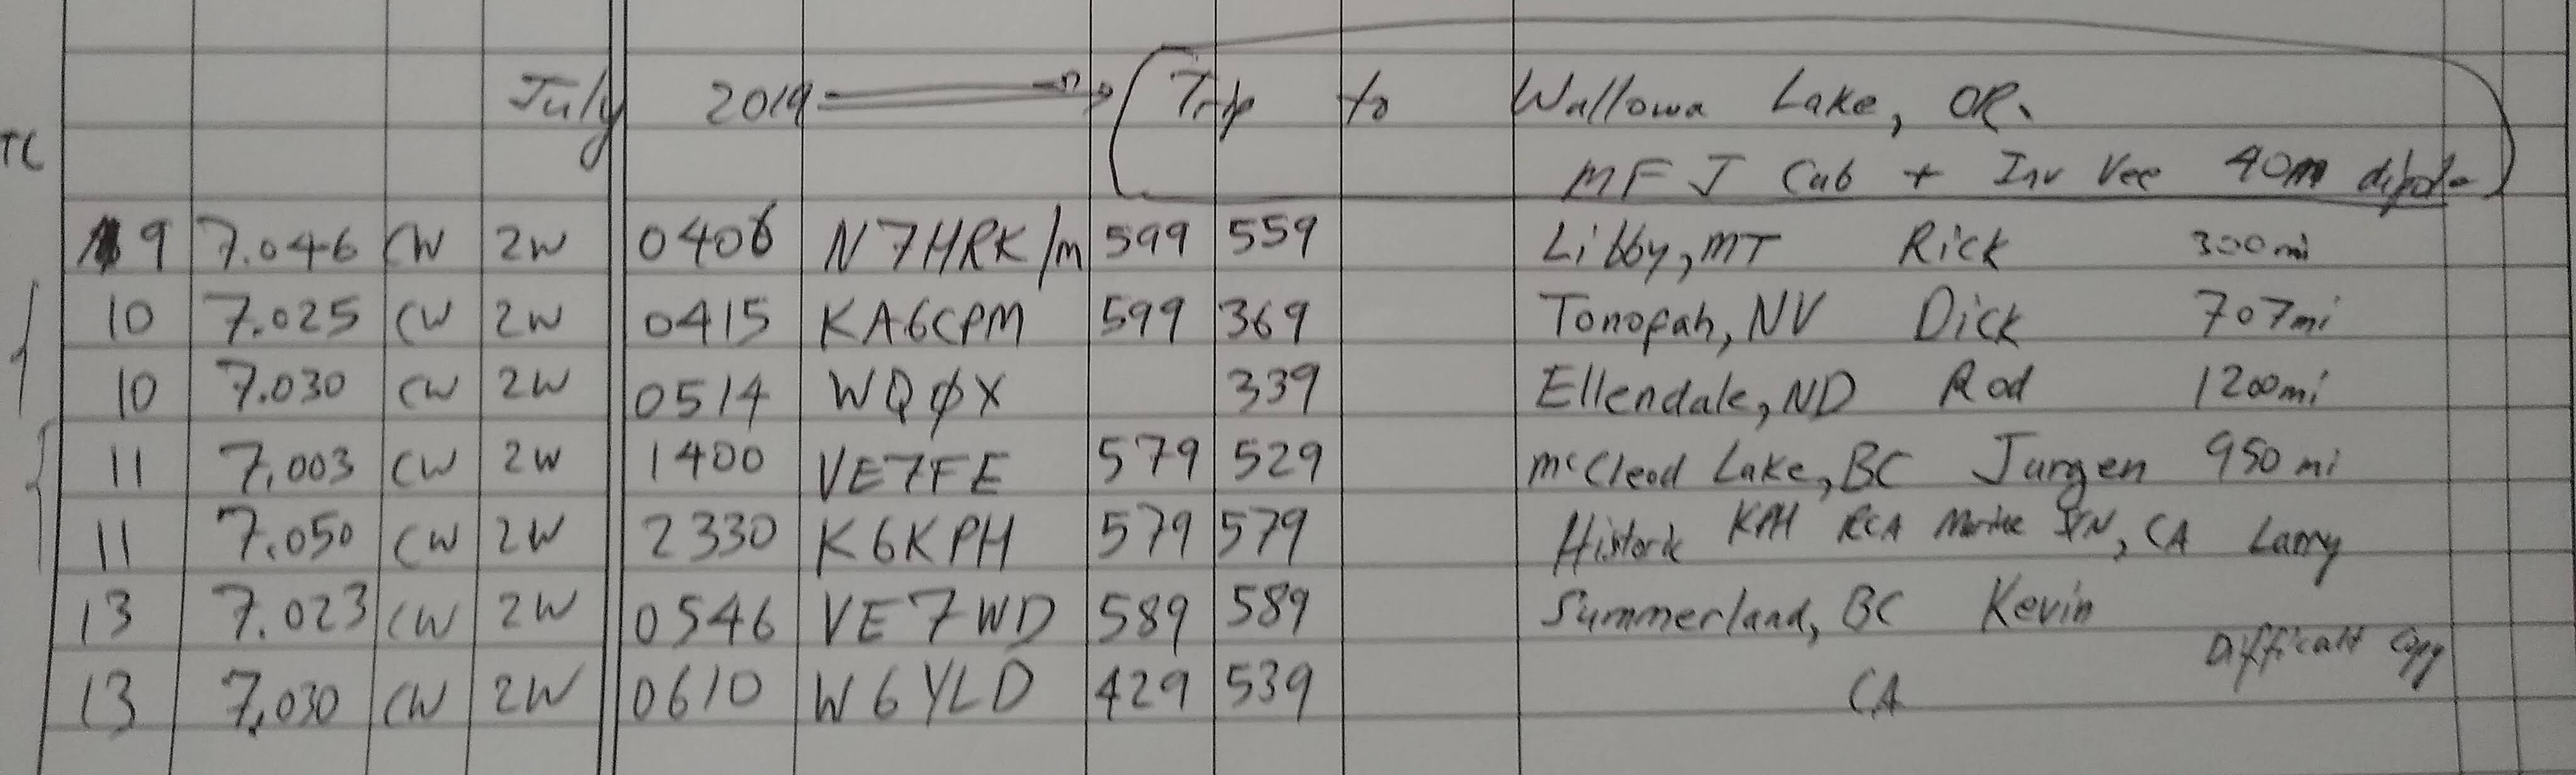 July 2019 Trip to Wallowa Lake, OR.
TC
MFJ Cub + Inv Vee 40m dipole
9 7.046 CW 2W 0406 N7HRK/m 599 559 Libby, MT Rick 300mi
10 7.025 CW 2W 0415 KA6CPM 599 369 Tonopah, NV Dick 707mi
10 7.030 CW 2W 0514 WQØX 339 Ellendale, ND Rod 1200mi
11 7.003 CW 2W 1400 VE7FE 579 529 McCleod Lake, BC Jurgen 950mi
11 7.050 CW 2W 2330 K6KPH 579 579 Historic KPH RCA Marine , CA Larry
13 7.023 CW 2W 0546 VE7WD 589 589 Summerland, BC Kevin
13 7.030 CW 2W 0610 W6YLD 429 539 CA Difficult Copy